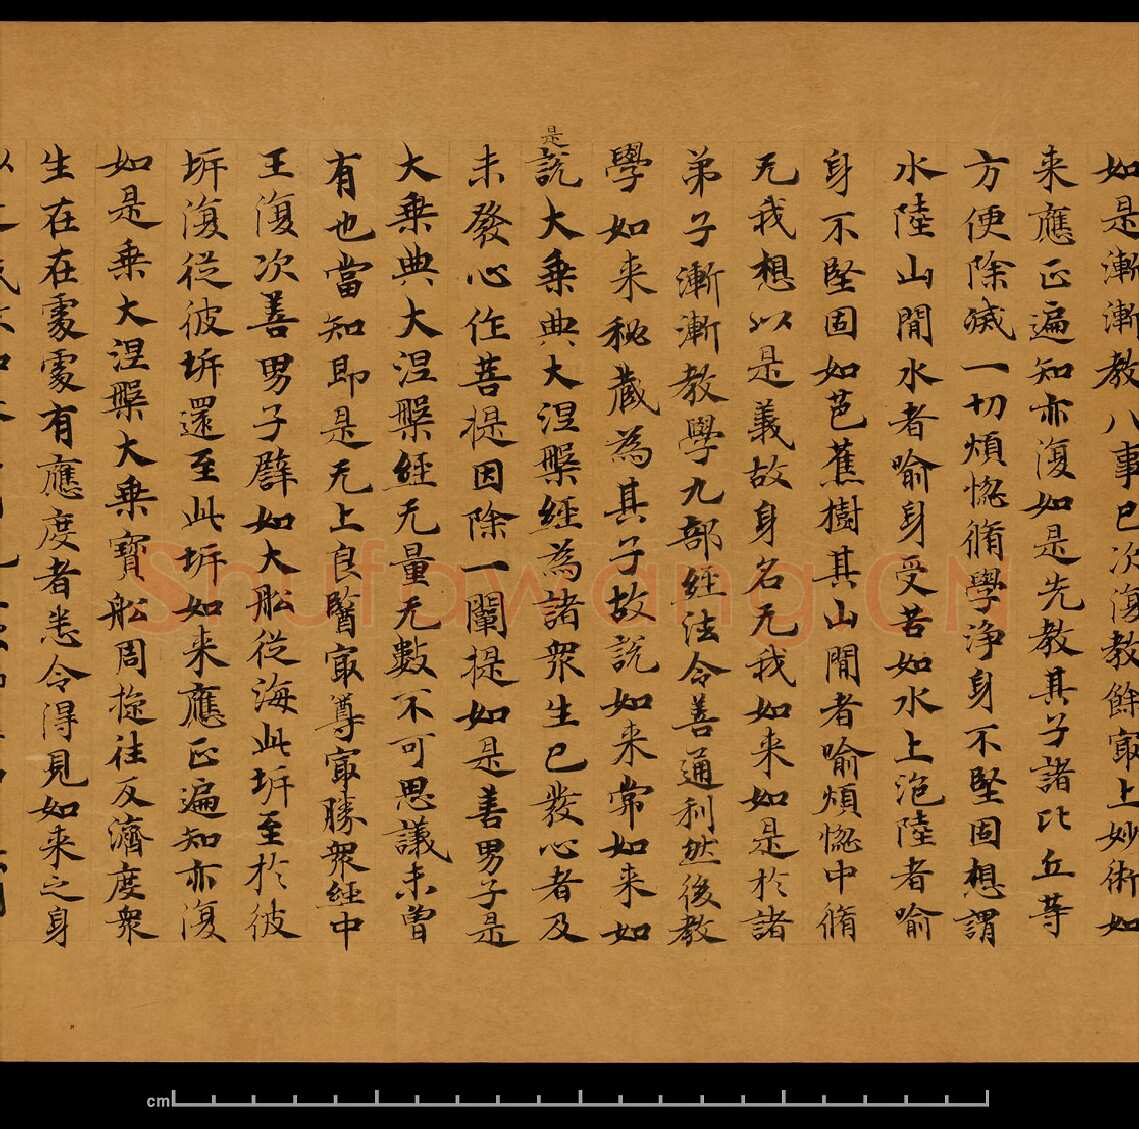 如是漸漸教八事已次復教餘冣上妙術如
来應正遍知亦復如是先教其子諸比丘等
方便除滅一切煩惚脩學淨身不堅固想謂
水陸山間水者喻身受苦如水上泡陸者喻
身不堅固如芭蕉樹其山間者喻煩惚中脩
无我想以是義故身名无我如来如是於諸
弟子漸漸教學九部經法令善通利然後教
學如来秘藏為其子故說如来常如来如
是說大乘典大涅槃經為諸衆生已發心者及
未發心作菩提因除一闡提如是善男子是
大乘典大涅槃經无量无數不可思議未曾
有也當知即是无上良醫冣尊冣勝衆經中
王復次善男子譬如大船從海此岍至於彼
岍復從彼岍還至此岍如来應正遍知亦復
如是乘大涅槃大乘寶船周旋往反濟度衆
生在在處處有應度者悉令得見如来之身
Shufawang.CN
cm